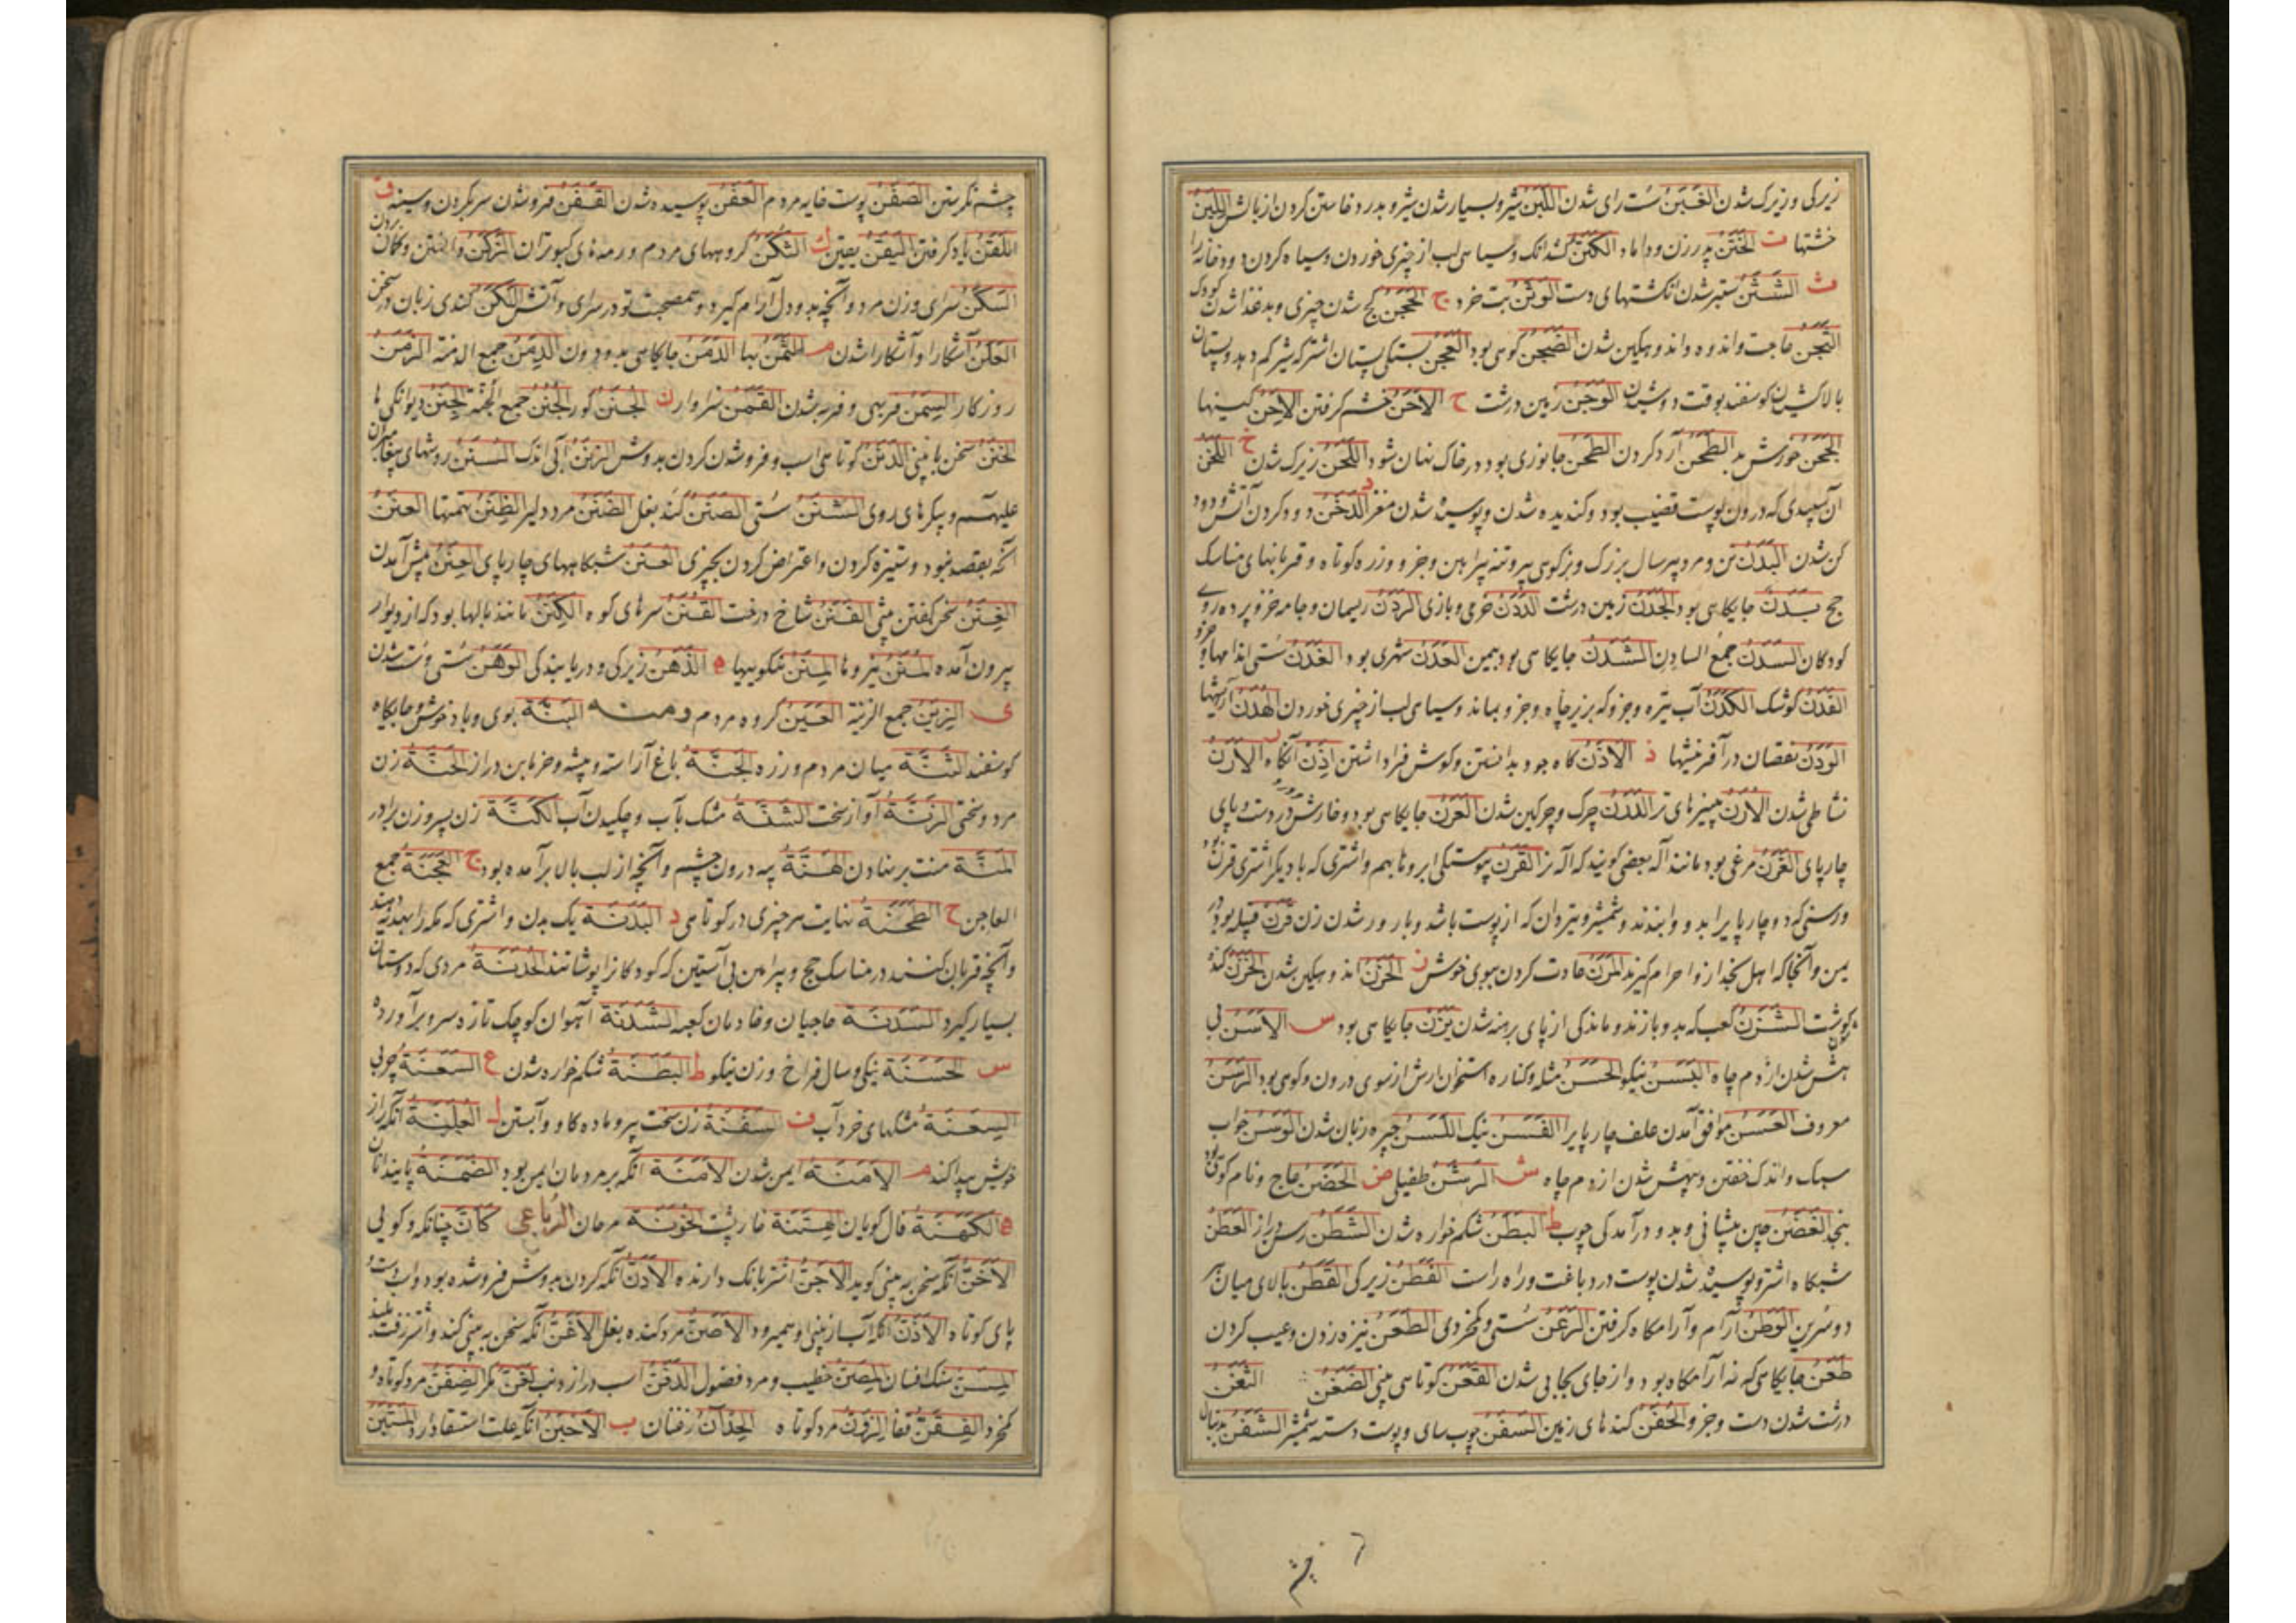 زیرکی و زیرک شدن الغَبَن سست رای شدن اللَبَن شیر و بسیار شدن شیر و بدرد خاستن کردن از بالش اللبِن
خشتها ت الخَتَن پدر زن و داماد الکَتَن و سیاهی لب از چیزی خوردن و سیاه کردن دود خانه را
ث الشَثَن ستبر شدن انگشتهای دست الوَثَن بت خرد ج الحَجَن کج شدن چیزی و بدغذا شدن کودک
الشَجَن حاجت و اندوه و اندوهگین شدن الضَجَن کوهی بود العَجَن بستگی پستان اشتر که شیر کم دهد و پستان
بالا کشیدن گوسفند بوقت دوشیدن الوَجَن زمین درشت ح الاَحَن خشم گرفتن الاِحَن کینها
الجَحَن خورش بد الطَحَن آرد کردن الطُحَن جانوری بود در خاک نهان شود اللَحَن زیرک شدن خ اللَخَن
آن سپیدی که درون پوست قضیب بود و گندیده شدن و پوسیده شدن مغز الدَخَن دود کردن آتش و دود
کن شدن البَدَن تن و مرد پیر سال بزرگ و بز کوهی پیر و تنه پیراهن و جز و زره کوتاه و قربانهای مناسک
حج بَدَن جایگاهی بود الجَدَن زمین درشت الدَدَن خرمی و بازی الرَدَن ریسمان و جامه خز و پرده روی
کودکان السَدَن جمع السادن الشَدَن جایگاهی بود بیمن العَدَن شهری بود الغَدَن سستی اندامها و جز و
الفَدَن کوشک الکَدَن آب تیره و جز و که بزیر چاه و جز و بماند و سیاهی لب از چیزی خوردن الهُدَن
الوَدَن نقصان در آفرینشها ذ الاَذَن کاه جو و بدانستن و گوش فرا داشتن اِذَن آنگاه ر الاَرَن
نشاطی شدن الاُرَن پنیرهای تر الدَرَن چرک و چرکین شدن العَرَن جایگاهی بود و خارش در دست و پای
چارپای الغَرَن مرغی بود مانند آله بعضی گویند که آله نر القَرَن پیوستگی ابروها بهم و اشتری که با دیگر اشتری قرن بود
و رسنی که دو چارپا را بدو وا بندند و شمشیر و تیردان که از پوست باشد و بارور شدن زن قَرَن قبیله بود در
یمن و آنجا که اهل نجد از او احرام گیرند المَرَن عادت کردن ببوی خوش ز الحَزَن اندوهگین شدن الخَزَن گنده
گوشت الشَزَن کعب که بدو بازند و ماندگی از پای برهنه شدن یَزَن جایگاهی بود س الاَسَن بی
هش شدن از دم چاه البَسَن نیکو الحَسَن مثله و کناره استخوان ارش از سوی درون و کوهی بود الرَسَن
معروف العَسَن موافق آمدن علف چارپا را القَسَن نیک اللَسَن چیره زبان شدن الوَسَن خواب
سبک و اندک خفتن و بیهش شدن از دم چاه ش الرَشَن طفیلی ض الحَضَن عاج و نام کوهی بود
بنجد الغَضَن چین پیشانی و بدو درآمدگی چوب ط البَطَن شکم خواره شدن الشَطَن رسن دراز العَطَن
شبگاه اشتر و پوسیده شدن پوست در دباغت و راه راست الفَطَن زیرکی القَطَن بالای میان
دو سرین الوَطَن آرام و آرامگاه گرفتن الرَعَن سستی و کم خردی الطَعَن نیزه زدن و عیب کردن
ظَعَن جایگاهی که نه آرامگاه بود و از جای بجایی شدن القَعَن کوتاهی بینی الضَغَن الثَفَن
درشت شدن دست و جز و الحُفَن کندهای زمین السَفَن چوب سای و پوست دسته شمشیر الشَفَن بدنبال
چشم نگرستن الصَفَن پوست خایه مردم العَفَن پوسیده شدن القَفَن فرو شدن سر بگردن و سینه ق
اللَقَن یاد گرفتن الیَقَن یقین ک الثُکَن گروههای مردم و رمه های کبوتران الزَکَن دانستن و گمان بردن
السَکَن سرای و زن مرد و آنچه بدو دل آرام گیرد و همصحبت تو در سرای و آتش اللَکَن کندی زبان در سخن
العَلَن آشکارا و آشکارا شدن م الثَمَن بها الدَمَن جایگاهی بدو درون الدِمَن جمع الدمنة الزَمَن
روزگار السِمَن فربهی و فربه شدن القَمَن سزاوار ن الجَنَن گور الجُنَن جمع الجُنّة الجِنَن دیوانگی ها
الخَنَن سخن با بینی الدَنَن کوتاهی اسب و فرو شدن گردن بدوش الزَنَن آبی اندک السُنَن روشهای پیغامبران
علیهم و پیکرهای روی الشَنَن سستی الصَنَن گند بغل الضَنَن مرد دلیر الظِنَن تهمتها العَنَن
آنچه بقصد نبود و ستیزه کردن و اعتراض کردن بچیزی العُنَن شبگاههای چارپای العِنَن پیش آمدن
الغُنَن سخن گفتن بینی الفَنَن شاخ درخت القُنَن سرهای کوه الکِنَن مانند بالها بود که از دیوار
بیرون آمده المُنَن نیروها المِنَن نیکوییها ه الذَهَن زیرکی و دریابندگی الوَهَن سستی و سست شدن
ی الزِیَن جمع الزینة العَیَن گروه مردم ومنه البَنَّة بوی و باد خوش و جایگاه
گوسفند الثُنَّة میان مردم و زره الجَنَّة باغ آراسته و بیشه و خرمابن دراز الحَنَّة زن
مرد و سختی الرَنَّة آواز سخت الشَنَّة مشک با آب و چکیدن آب الکَنَّة زن پسر و زن برادر
المَنَّة منت بر نهادن هَنَّة پیه درون چشم و آنچه از لب بالا برآمده بود ج العَجَنَة جمع
العاجن ح الطُحَنَة نهایت هر چیزی در کوتاهی د البَدَنَة یک بدن و اشتری که مکه را بهدیه دهند
و آنچه قربان کنند در مناسک حج و پیراهن بی آستین که کودکان را پوشانند الخُدَنَة مردی که دوستان
بسیار گیرد السَدَنَة حاجیان و خادمان کعبه الشَدَنَة آهوان کوچک تازه سرو برآورده
س الحَسَنَة نیکی و سال فراخ و زن نیکو ط البَطَنَة شکم خواره شدن ع السَعَنَة چربی
السِعَنَة مشکهای خرد آب ف السَفَنَة زن سخت پیر و ماده گاو و آبستن ل العَلَنَة آنکه راز
خویش پیدا کند م الاَمَنَة ایمن شدن الاُمَنَة آنکه بر مردمان ایمن بود الضَمَنَة پایندانان
ه الکَهَنَة فال گویان الهَتَنَة خارپشت الخَوَنَة مرجان الرباعی کَاَنَّ چنانکه و گویی
الاَخَنُّ آنکه سخن به بینی گوید الاَجَنُّ اشتر بانگ دارنده الاَدَنُّ آنکه گردن بدوش فرو شده بود و اسب
پای کوتاه الاَذَنُّ آنکه آب از بینی او همیرود الاَصَنُّ مرد گنده بغل الاَغَنُّ آنکه سخن به بینی کند و اشتر زفت بلند
المِسَنُّ سنگ افسان المِصَنُّ خطیب و مرد فضول الدفَنُّ اسب دراز دنب لَعَنَّ مگر الضِفَنُّ مرد کوتاه و
کم خرد الفِقَنُّ قفا الزِوَنُّ مرد کوتاه الحِدثان رفتنان ب الاَحبَن آنکه علت استسقا دارد المُستَبِن
چشم